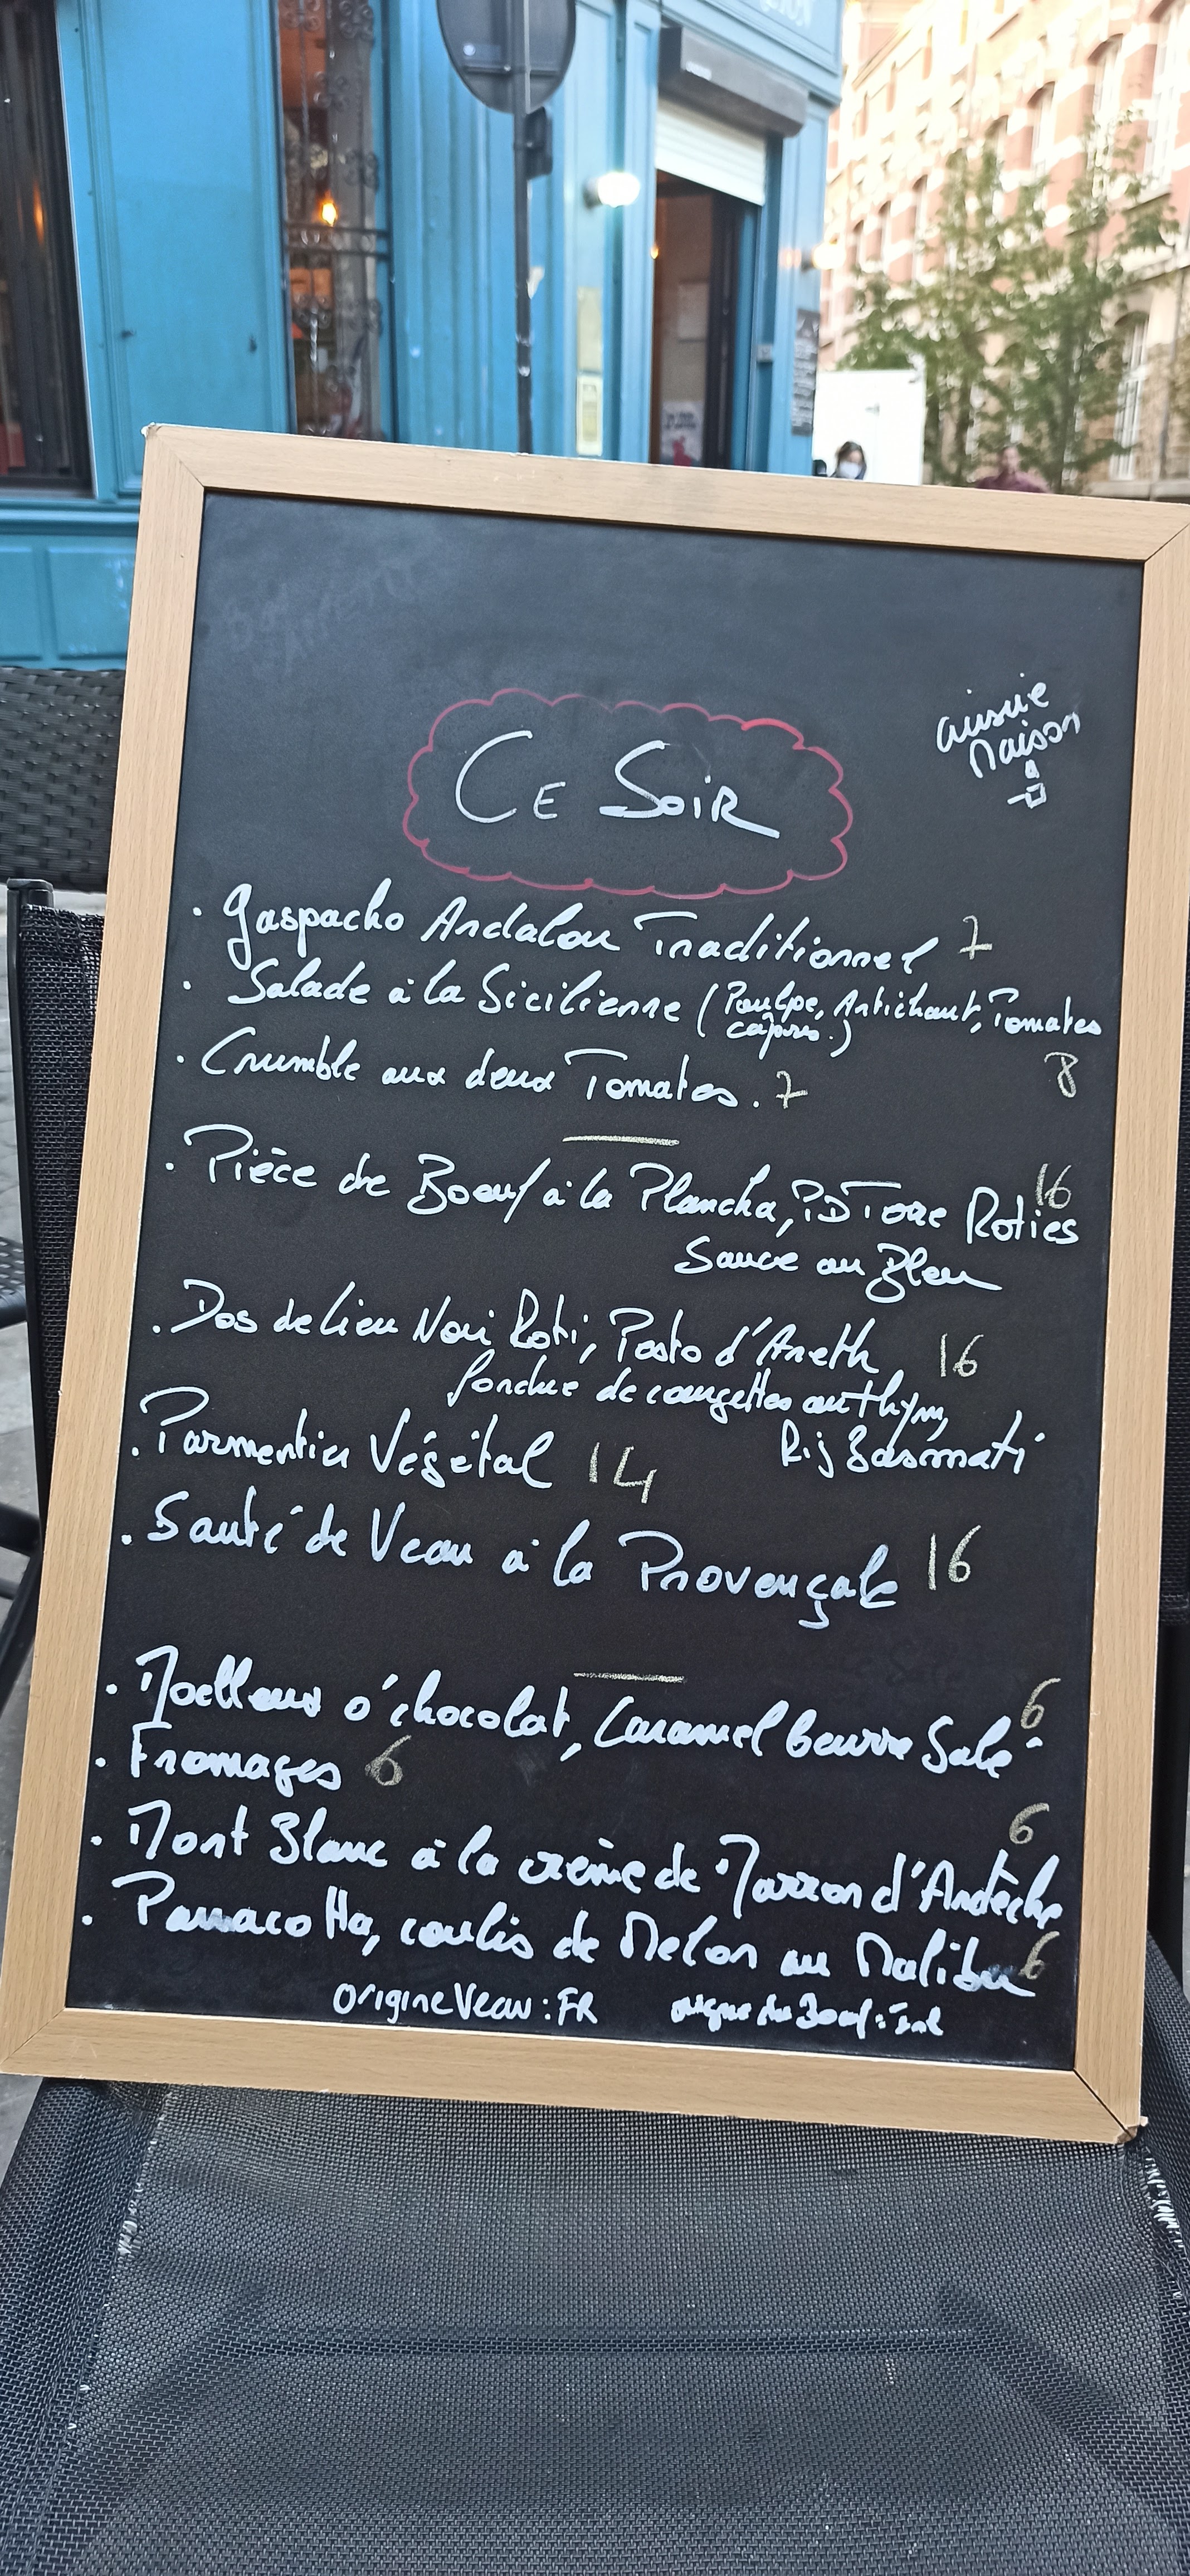 cuisine
Maison
CE SOIR
. Gaspacho Andalou Traditionnel 7
. Salade à la Sicilienne (Poulpe, Artichaut, Tomates
capres.)
8
. Crumble aux deux Tomates. 7
. Pièce de Boeuf à la Plancha, PDTerre Roties 16
Sauce au Bleu
. Dos de lieu Noir Roti, Pesto d'Aneth 16
fondue de courgettes au thym,
Riz Basmati
. Parmentier Végétal 14
. Sauté de Veau à la Provençale 16
. Moelleux o'chocolat, Caramel beurre Salé 6
. Fromages 6
. Mont Blanc à la crème de Marron d'Ardèche 6
. Pannacotta, coulis de Melon au Malibu 6
origine Veau : FR origine du Boeuf :